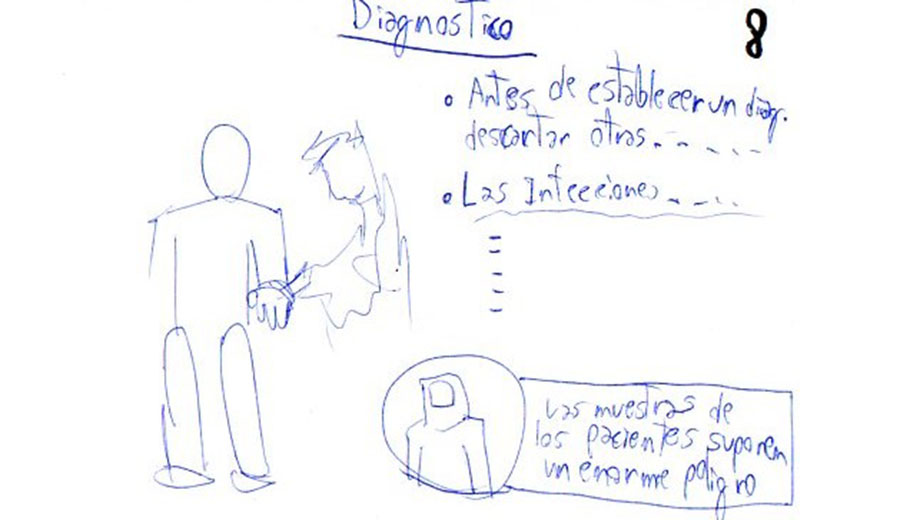 Diagnostico
8
• Antes de establecer un diag.
descartar otras.----
• Las Infecciones----
Las muestras de
los pacientes suponen
un enorme peligro